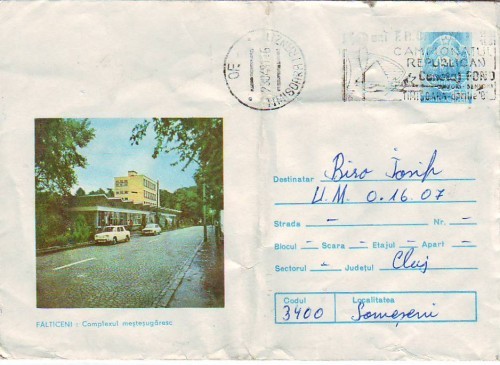 TIMIȘOARA
CAMPIONATUL
REPUBLICAN
FOND
TIMISOARA
Destinatar Biro Iosif
U.M. 0.16.07
Strada - Nr. -
Blocul - Scara - Etajul - Apart -
Sectorul - Județul Cluj
Codul Localitatea
3400 Someșeni
FĂLTICENI : Complexul meșteșugăresc